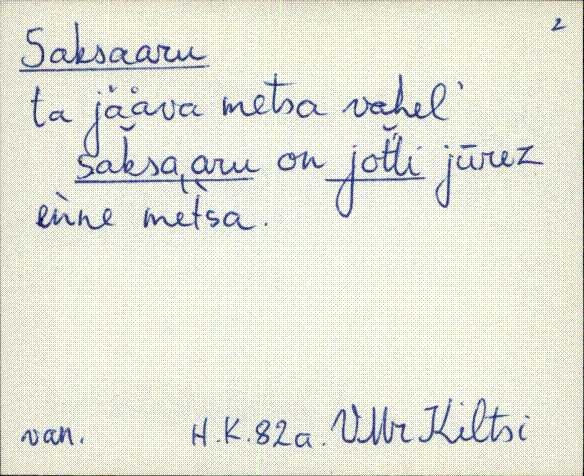 2
Saksaaru
ta jääva metsa vahel'
săksa,aru on jotĭli jūrez
eǹne metsa.
van. H.K. 82a. VMr Kiltsi